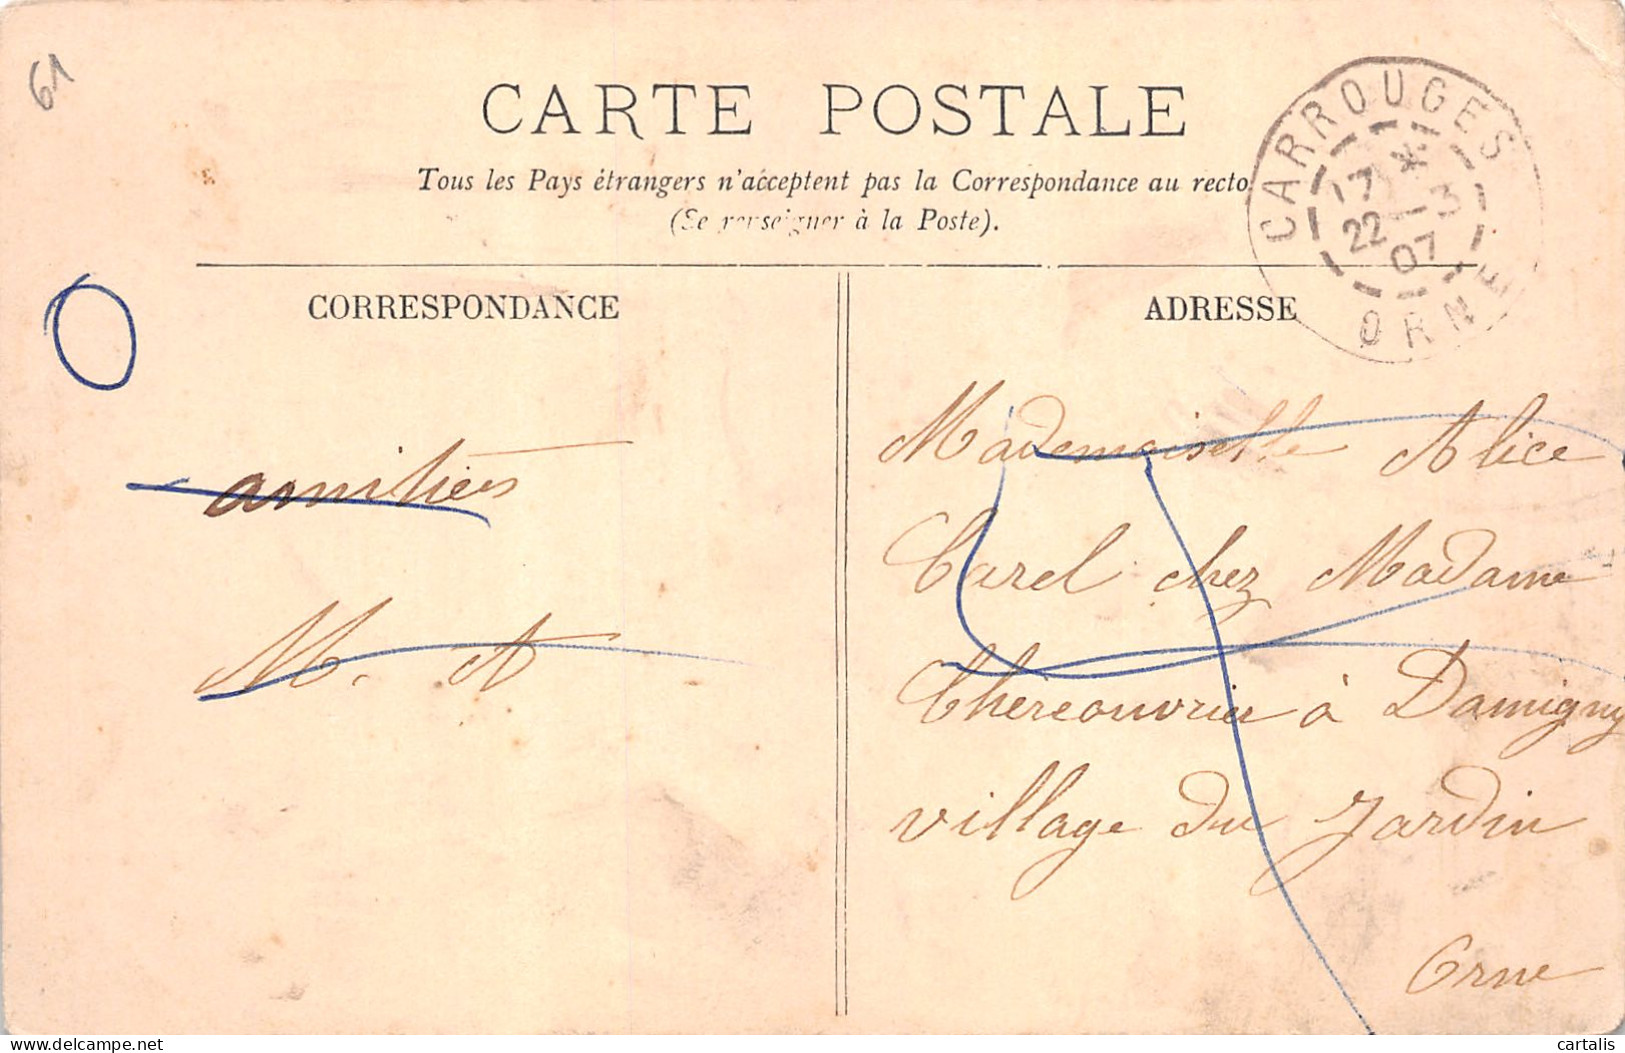 61
CARTE POSTALE
Tous les Pays étrangers n'acceptent pas la Correspondance au recto
(Se renseigner à la Poste).
CARROUGES
17 *
22 - 3
07
ORNE
CORRESPONDANCE
amitiés
M. A
ADRESSE
Mademoiselle Alice
Carel chez Madame
à Damigny
village du Jardin
Orne
cartalis